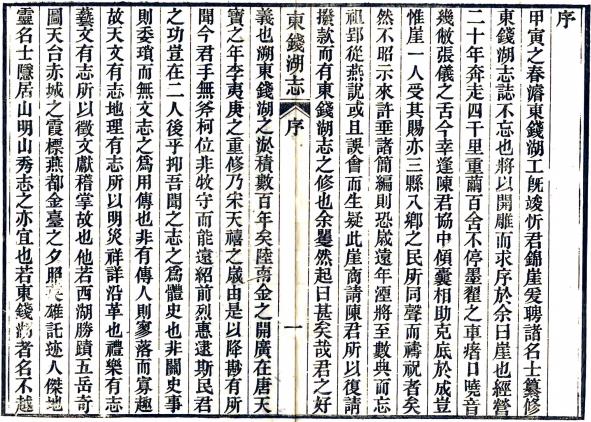 序
甲寅之春濬東錢湖工旣竣忻君錦崖爰聘諸名士纂修
東錢湖志誌不忘也將以開雕而求序於余曰崖也經營
二十年奔走四千里重繭百舍不停墨翟之車瘏口曉音
幾敝張儀之舌今幸逢陳君協中傾囊相助克底於成豈
惟崖一人受其賜亦三縣八鄉之民所同聲而禱祝者矣
然不昭示來許垂諸簡編則恐歲遠年湮將至數典而忘
祖郢從燕說或且誤會而生疑此崖商請陳君所以復請
撥款而有東錢湖志之修也余矍然起曰甚矣哉君之好
東錢湖志 序 一
義也溯東錢湖之淤積數百年矣陸南金之開廣在唐天
寶之年李夷庚之重修乃宋天禧之歲由是以降尠有所
聞今君手無斧柯位非牧守而能遠紹前烈惠遺斯民君
之功豈在二人後乎抑吾聞之志之爲體史也非關史事
則委瑣而無文志之爲用傳也非有傳人則寥落而寡趣
故天文有志地理有志所以明災祥詳沿革也禮樂有志
藝文有志所以徵文獻稽掌故也他若西湖勝蹟五岳奇
圖天台赤城之霞標燕都金臺之夕照英雄託迹人傑地
靈名士隱居山明山秀志之亦宜也若東錢湖者名不越